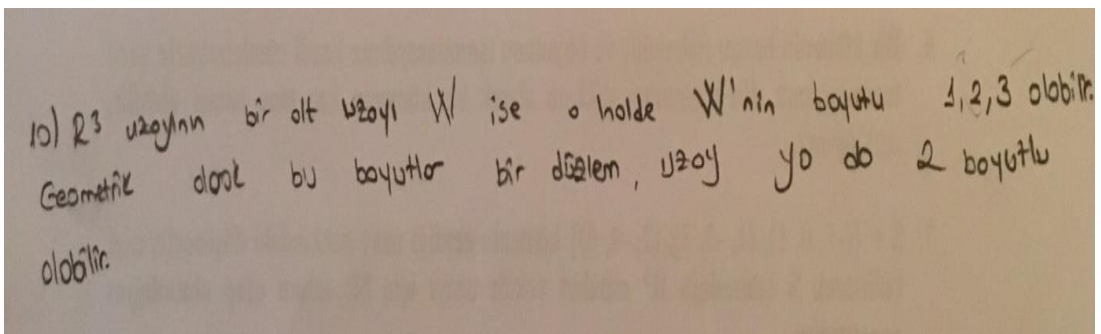 10) R³ uzayının bir alt uzayı W ise o halde W'nin boyutu 1,2,3 olabilir.
Geometrik olarak bu boyutlar bir düzlem, uzay ya da 2 boyutlu
olabilir.